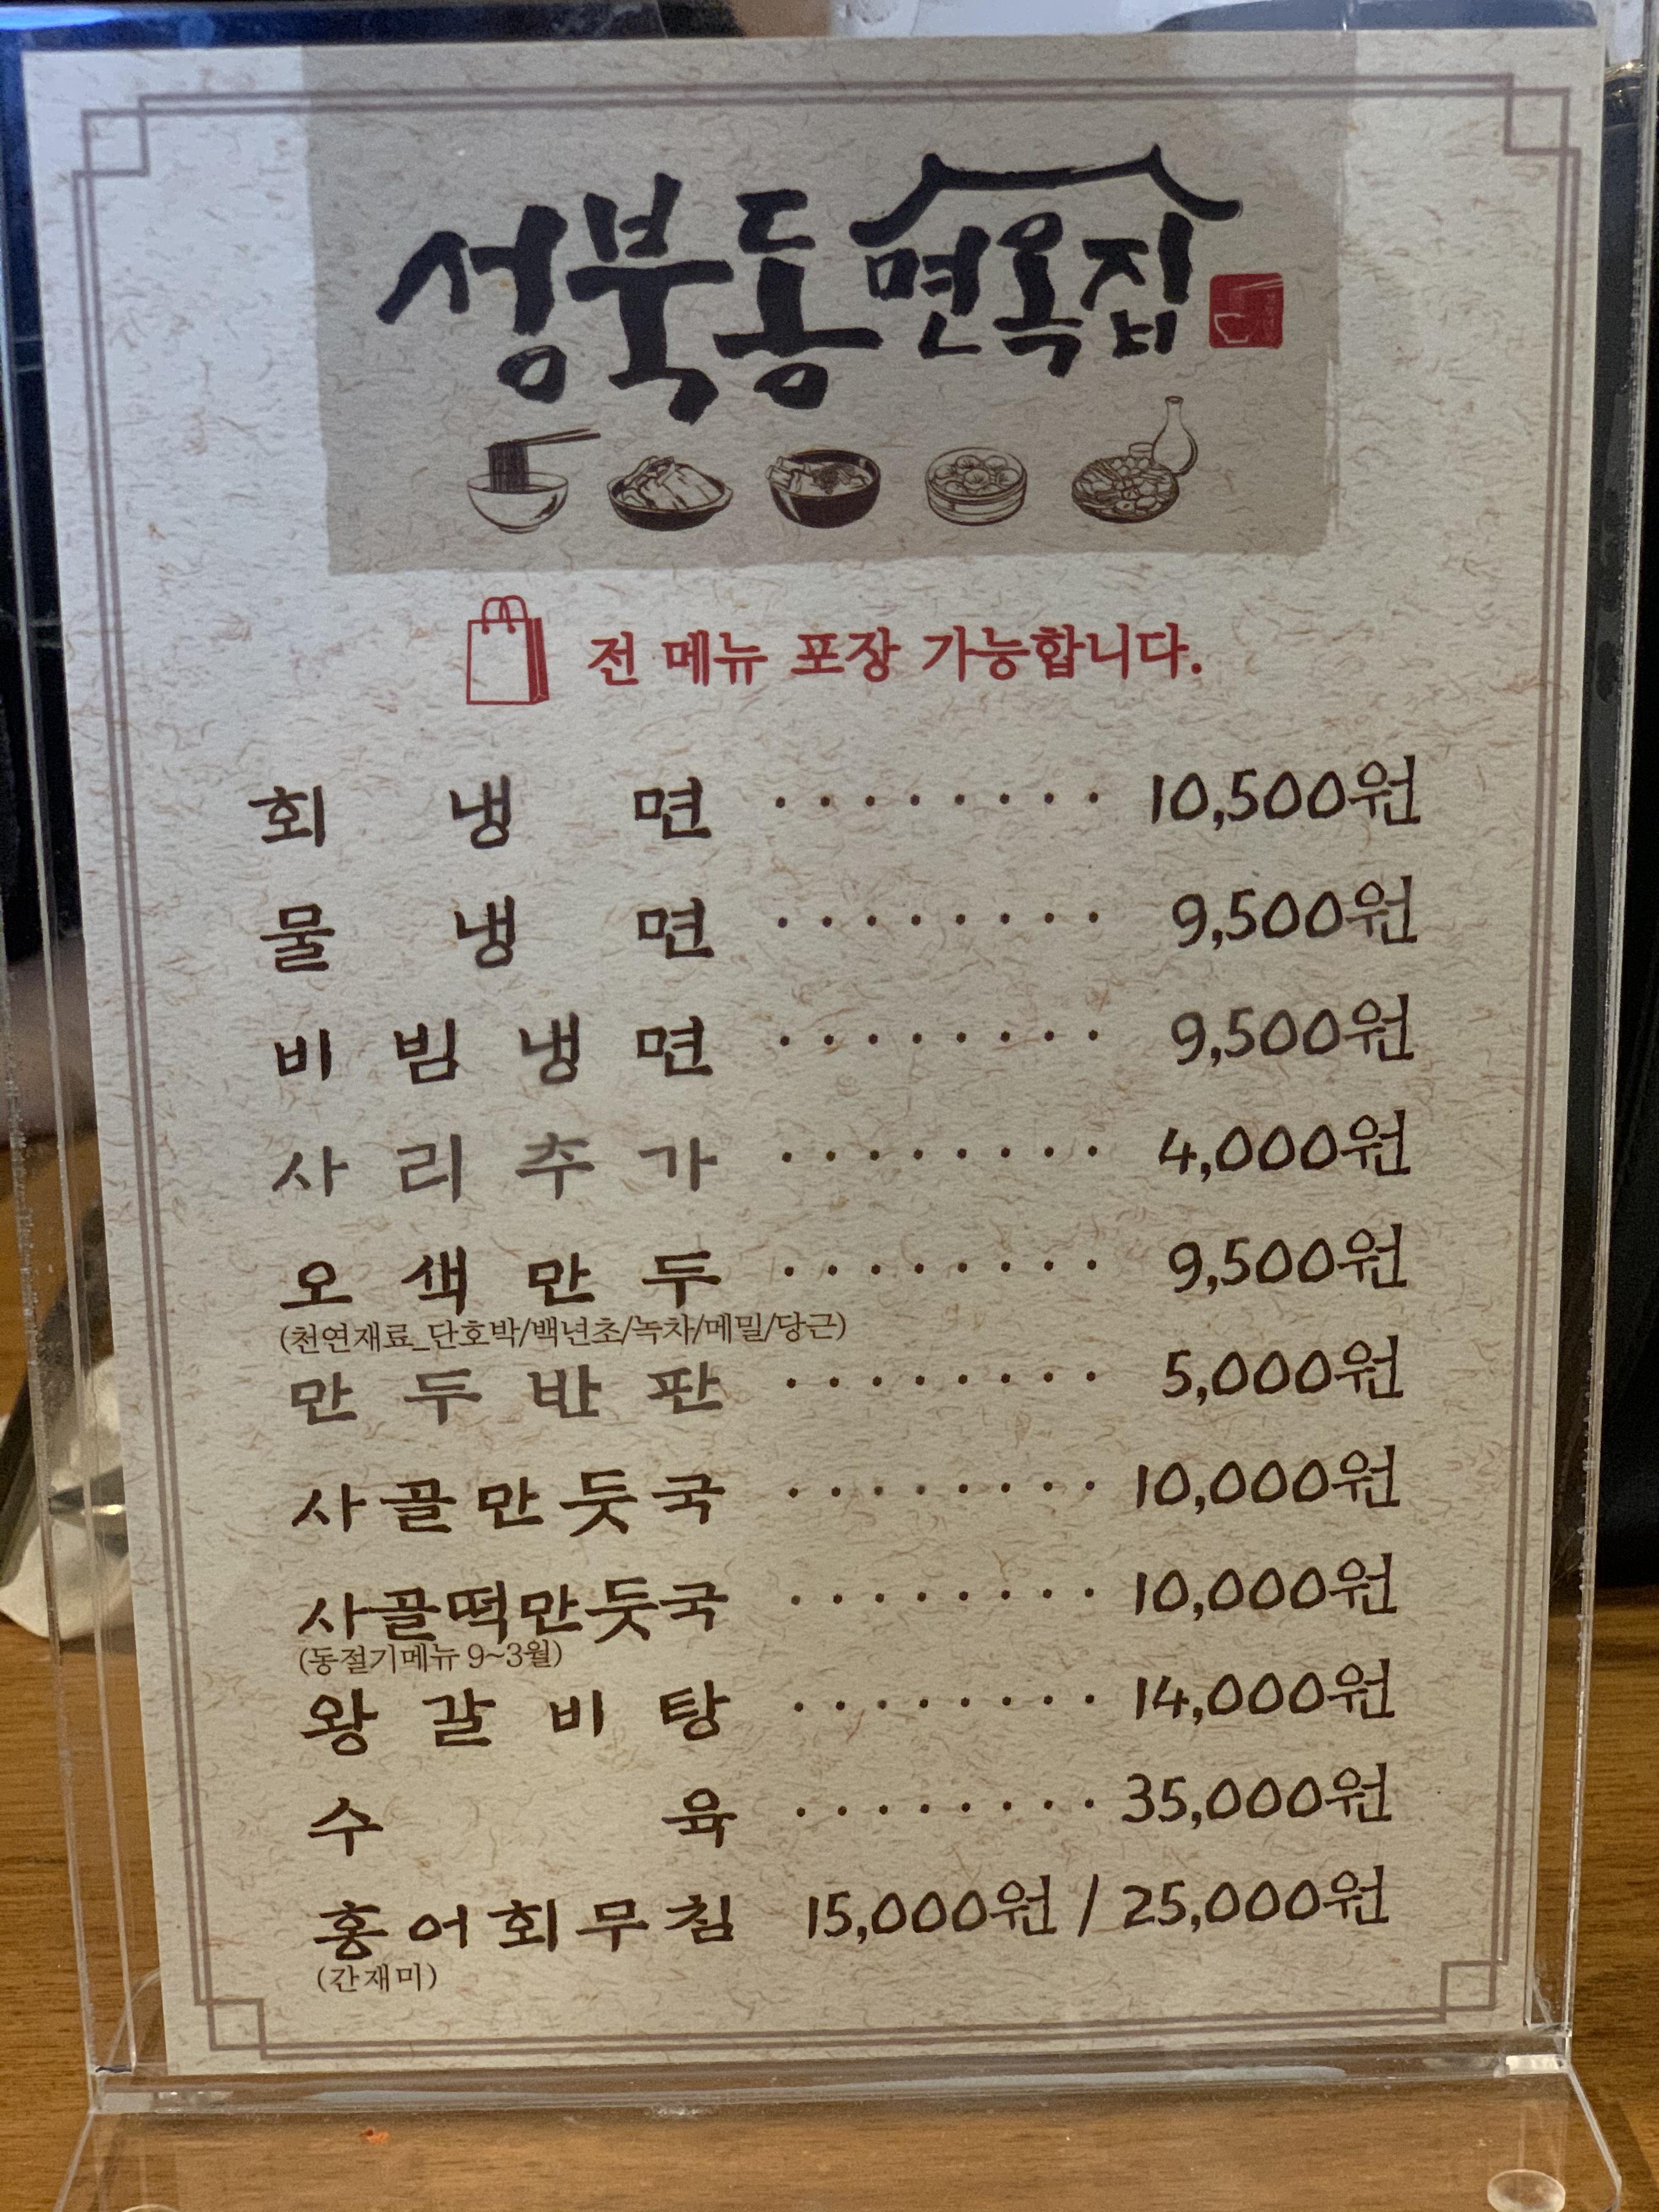 성북동 면옥집
전 메뉴 포장 가능합니다.
회 냉 면 ········ 10,500원
물 냉 면 ········ 9,500원
비 빔 냉 면 ········ 9,500원
사 리 추 가 ········ 4,000원
오 색 만 두 ········ 9,500원
(천연재료_단호박/백년초/녹차/메밀/당근)
만 두 반 판 ········ 5,000원
사 골 만 둣 국 ········ 10,000원
사골떡만둣국 ········ 10,000원
(동절기메뉴 9~3월)
왕 갈 비 탕 ········ 14,000원
수 육 ········ 35,000원
홍 어 회 무 침 15,000원 / 25,000원
(간재미)